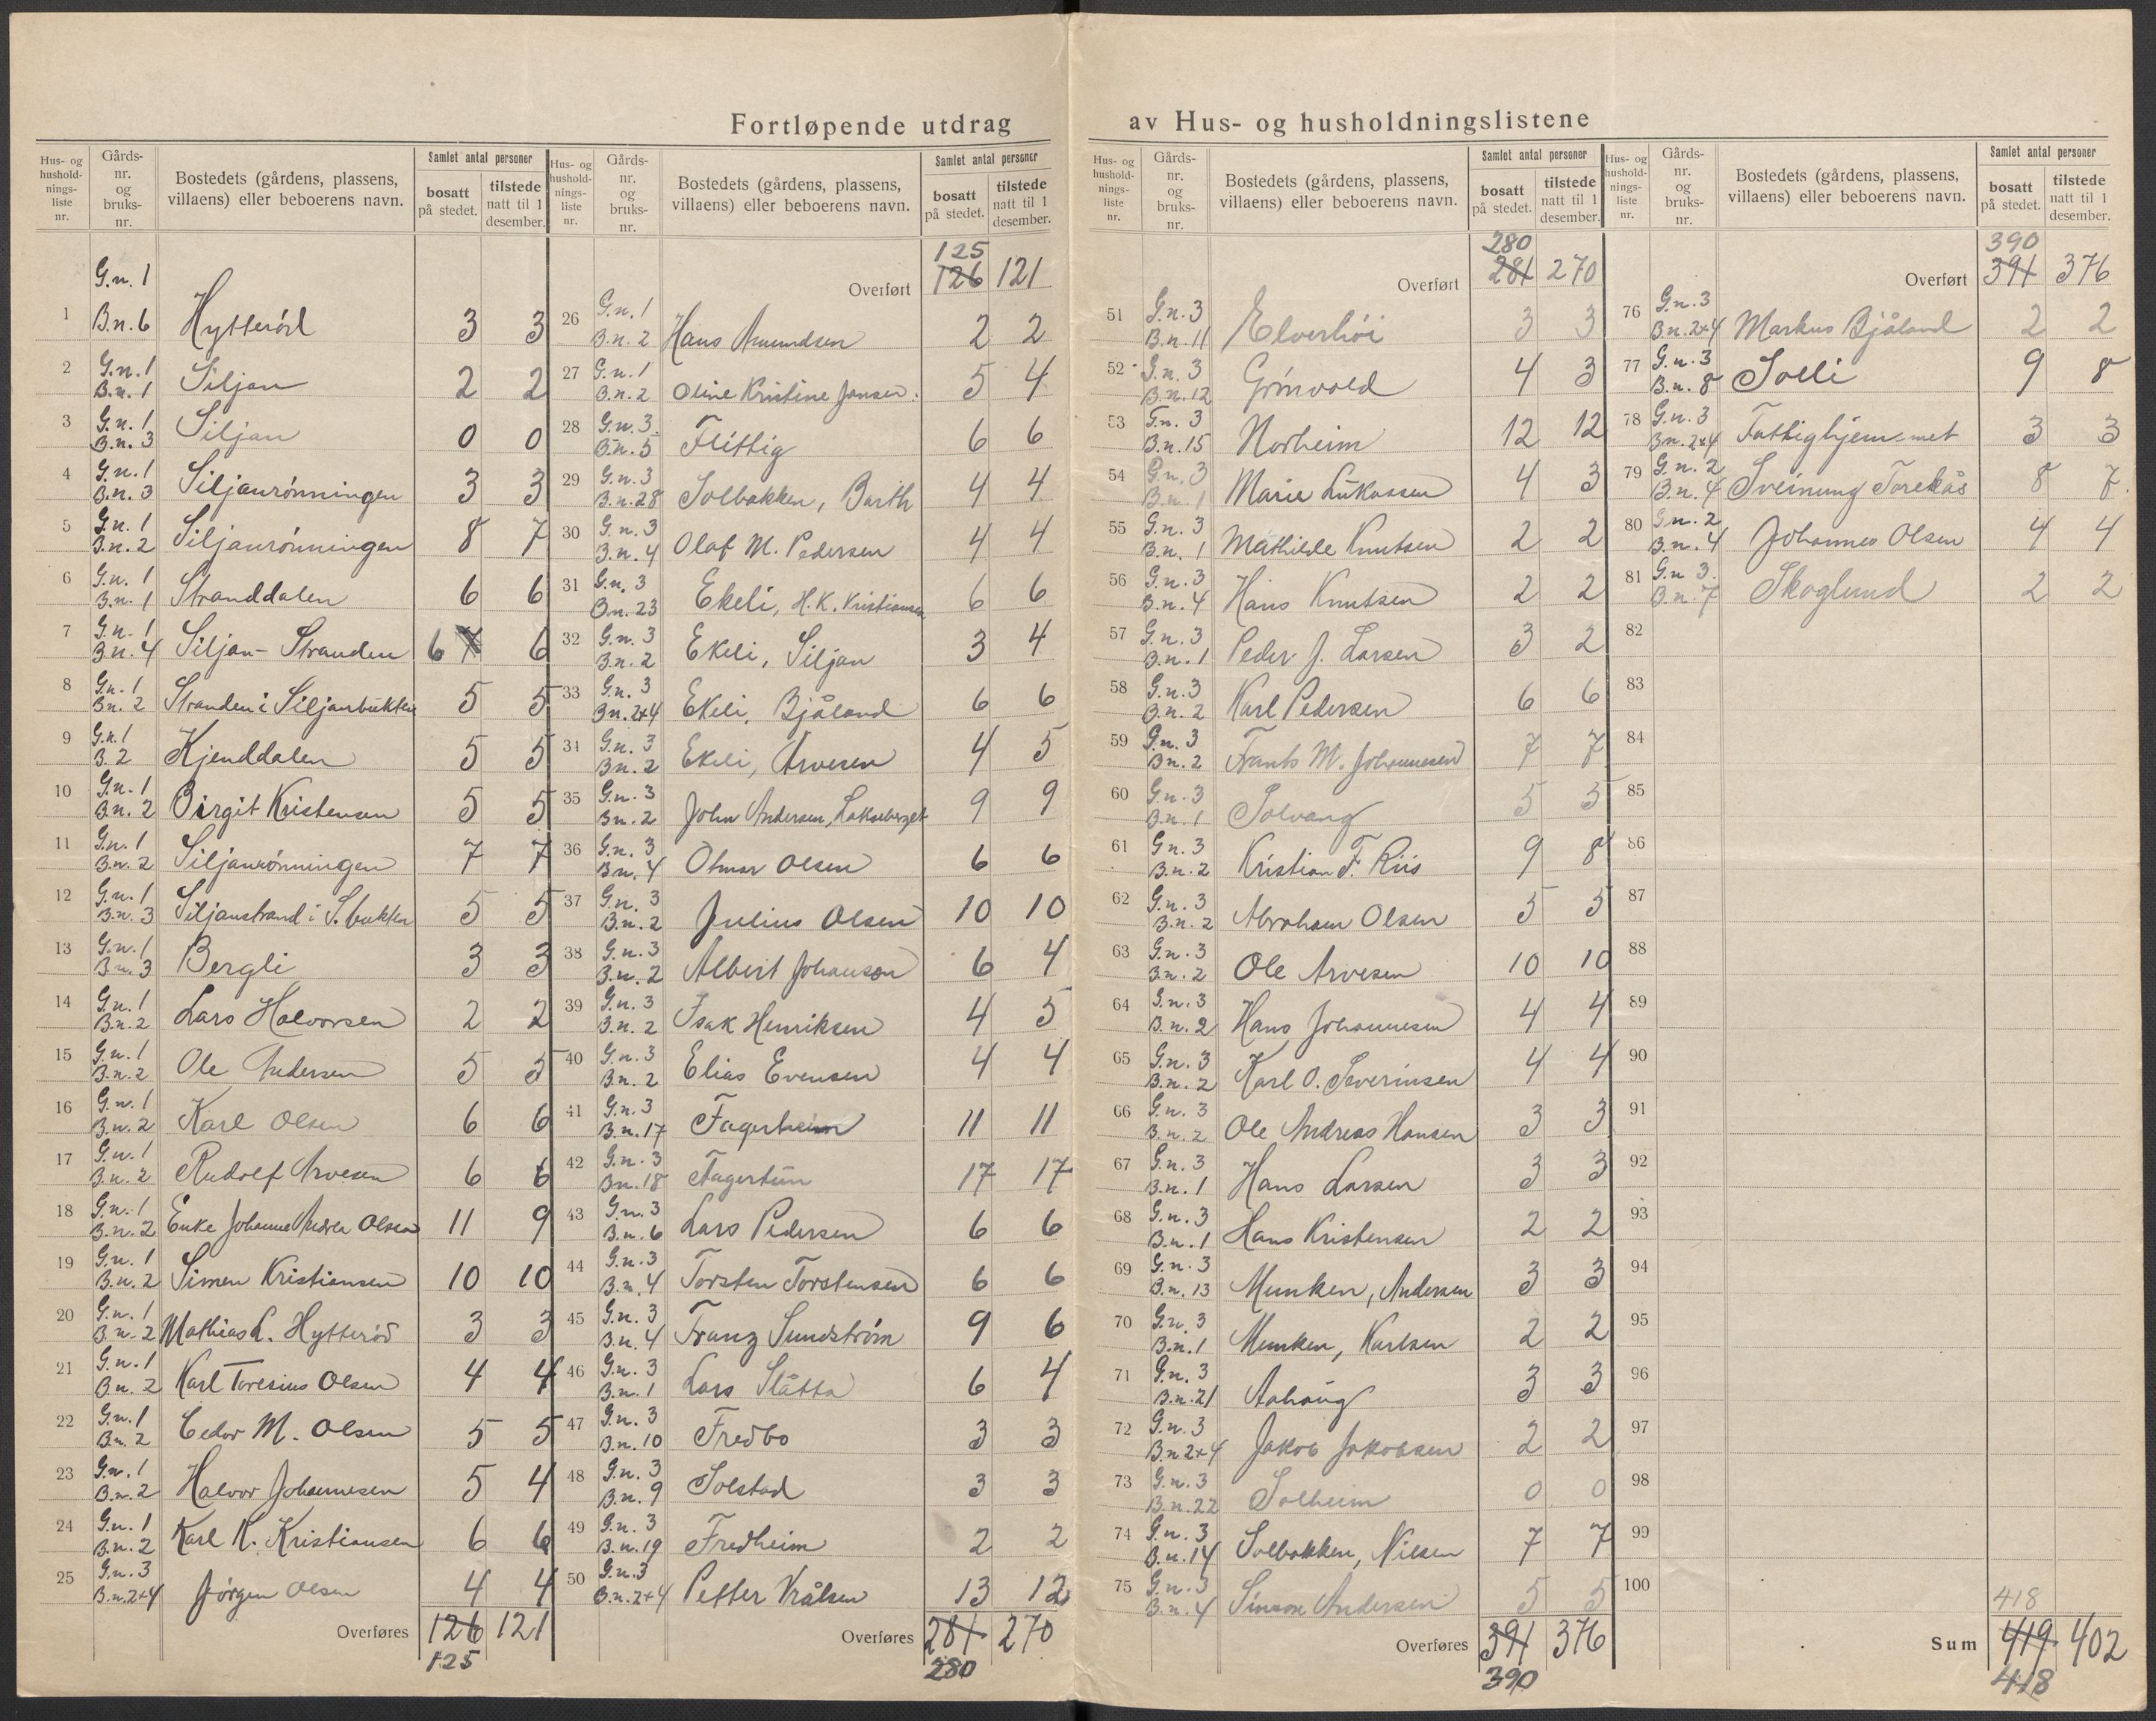 Fortløpende utdrag av Hus- og husholdningslistene
Hus- og husholdnings-liste nr. Gårds-nr. og bruks-nr. Bostedets (gårdens, plassens, villaens) eller beboerens navn. Samlet antal personer bosatt på stedet. tilstede natt til 1 desember.
1 G.n. 1 B.n. 6 Hytterød 3 3
2 G.n. 1 B.n. 1 Siljan 2 2
3 G.n. 1 B.n. 3 Siljan 0 0
4 G.n. 1 B.n. 3 Siljanrönningen 3 3
5 G.n. 1 B.n. 2 Siljanrönningen 8 7
6 G.n. 1 B.n. 1 Stranddalen 6 6
7 G.n. 1 B.n. 4 Siljan-Stranden 6 7 6
8 G.n. 1 B.n. 2 Stranden i Siljanbukten 5 5
9 G.n. 1 B. 2 Kjenddalen 5 5
10 G.n. 1 B.n. 2 Birgit Kristensen 5 5
11 G.n. 1 B.n. 2 Siljanrönningen 7 7
12 G.n. 1 B.n. 3 Siljanstrand i S. bukten 5 5
13 G.n. 1 B.n. 3 Bergli 3 3
14 G.n. 1 B.n. 2 Lars Halvorsen 2 2
15 G.n. 1 B.n. 2 Ole Andersen 5 5
16 G.n. 1 B.n. 2 Karl Olsen 6 6
17 G.n. 1 B.n. 2 Rudolf Arvesen 6 6
18 G.n. 1 B.n. 2 Enke Johanne Andrea Olsen 11 9
19 G.n. 1 B.n. 2 Simen Kristiansen 10 10
20 G.n. 1 B.n. 2 Mathias L. Hytteröd 3 3
21 G.n. 1 B.n. 2 Karl Toresius Olsen 4 4
22 G.n. 1 B.n. 2 Cedor M. Olsen 5 5
23 G.n. 1 B.n. 2 Halvor Johannesen 5 4
24 G.n. 1 B.n. 2 Karl K. Kristiansen 6 6
25 G.n. 3 B.n. 2+4 Jörgen Olsen 4 4
Overføres 126 121
125
Hus- og husholdnings-liste nr. Gårds-nr. og bruks-nr. Bostedets (gårdens, plassens, villaens) eller beboerens navn. Samlet antal personer bosatt på stedet. tilstede natt til 1 desember.
125
Overført 126 121
26 G.n. 1 B.n. 2 Hans Amundsen 2 2
27 G.n. 1 B.n. 2 Oline Kristine Jansen 5 4
28 G.n. 3 B.n. 5 Flittig 6 6
29 G.n. 3 B.n. 28 Solbakken, Barth 4 4
30 G.n. 3 B.n. 4 Olaf M. Pedersen 4 4
31 G.n. 3 B.n. 23 Ekeli, H. K. Kristiansen 6 6
32 G.n. 3 B.n. 2 Ekeli, Siljan 3 4
33 G.n. 3 B.n. 2+4 Ekeli, Bjåland 6 6
34 G.n. 3 B.n. 2 Ekeli, Arvesen 4 5
35 G.n. 3 B.n. 2 John Andersen, Lakseberget 9 9
36 G.n. 3 B.n. 4 Otmar Olsen 6 6
37 G.n. 3 B.n. 2 Julius Olsen 10 10
38 G.n. 3 B.n. 2 Albert Johanson 6 4
39 G.n. 3 B.n. 2 Isak Henriksen 4 5
40 G.n. 3 B.n. 2 Elias Evensen 4 4
41 G.n. 3 B.n. 17 Fagerheim 11 11
42 G.n. 3 B.n. 18 Fagertun 17 17
43 G.n. 3 B.n. 6 Lars Pedersen 6 6
44 G.n. 3 B.n. 4 Torsten Torstensen 6 6
45 G.n. 3 B.n. 4 Franz Sundström 9 6
46 G.n. 3 B.n. 1 Lars Slåtta 6 4
47 G.n. 3 B.n. 10 Fredbo 3 3
48 G.n. 3 B.n. 9 Solstad 3 3
49 G.n. 3 B.n. 19 Fredheim 2 2
50 G.n. 3 B.n. 2+4 Petter Kråksen 13 12
Overføres 281 270
280
Hus- og husholdnings-liste nr. Gårds-nr. og bruks-nr. Bostedets (gårdens, plassens, villaens) eller beboerens navn. Samlet antal personer bosatt på stedet. tilstede natt til 1 desember.
280
Overført 281 270
51 G.n. 3 B.n. 11 Elverhöi 3 3
52 G.n. 3 B.n. 12 Grönvold 4 3
53 G.n. 3 B.n. 15 Norheim 12 12
54 G.n. 3 B.n. 1 Marie Lukassen 4 3
55 G.n. 3 B.n. 1 Mathilde Knutsen 2 2
56 G.n. 3 B.n. 4 Hans Knutsen 2 2
57 G.n. 3 B.n. 1 Peder J. Larsen 3 2
58 G.n. 3 B.n. 2 Karl Pedersen 6 6
59 G.n. 3 B.n. 2 Frants M. Johannesen 7 7
60 G.n. 3 B.n. 1 Solvang 5 5
61 G.n. 3 B.n. 2 Kristian F. Riis 9 8
62 G.n. 3 B.n. 2 Abraham Olsen 5 5
63 G.n. 3 B.n. 2 Ole Arvesen 10 10
64 G.n. 3 B.n. 2 Hans Johannesen 4 4
65 G.n. 3 B.n. 2 Karl O. Severinsen 4 4
66 G.n. 3 B.n. 2 Ole Andreas Hansen 3 3
67 G.n. 3 B.n. 1 Hans Larsen 3 3
68 G.n. 3 B.n. 1 Hans Kristensen 2 2
69 G.n. 3 B.n. 13 Munken, Andersen 3 3
70 G.n. 3 B.n. 1 Munken, Karlsen 2 2
71 G.n. 3 B.n. 21 Aahaug 3 3
72 G.n. 3 B.n. 2+4 Jakob Jakobsen 2 2
73 G.n. 3 B.n. 22 Solheim 0 0
74 G.n. 3 B.n. 14 Solbakken, Nilsen 7 7
75 G.n. 3 B.n. 4 Simon Andersen 5 5
Overføres 391 376
390
Hus- og husholdnings-liste nr. Gårds-nr. og bruks-nr. Bostedets (gårdens, plassens, villaens) eller beboerens navn. Samlet antal personer bosatt på stedet. tilstede natt til 1 desember.
390
Overført 391 376
76 G.n. 3 B.n. 2+4 Markus Bjåland 2 2
77 G.n. 3 B.n. 8 Solli 9 8
78 G.n. 3 B.n. 2+4 Fattighjemmet 3 3
79 G.n. 2 B.n. 4 Sveinung Torekås 8 7
80 G.n. 2 B.n. 4 Johannes Olsen 4 4
81 G.n. 3 B.n. 7 Skoglund 2 2
82
83
84
85
86
87
88
89
90
91
92
93
94
95
96
97
98
99
100
418
Sum 419 402
418